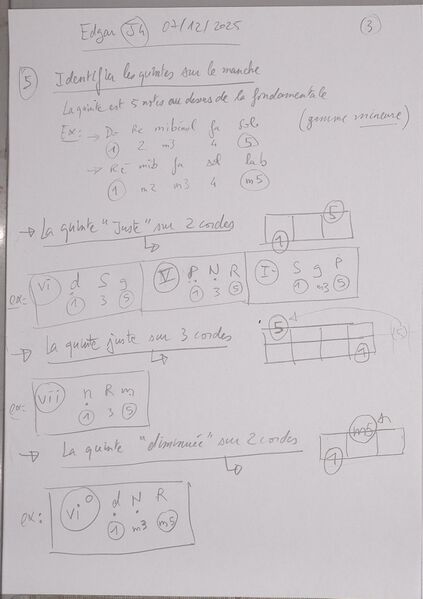 Edgar J4 07/12/2025 3
5 Identifier les quintes sur le manche
La quinte est 5 notes au dessus de la fondamentale
(gamme mineure)
Ex: → Do Re mibémol fa Sol
1 2 m3 4 5
→ Ré mib fa sol lab
1 m2 m3 4 m5
→ La quinte "Juste" sur 2 cordes
5
1
ex: vi d S g V P N R I S g P
1 3 5 1 3 5 1 m3 5
→ La quinte juste sur 3 cordes
5 (5)
1
ex: vii n R m
1 3 5
→ La quinte "diminuée" sur 2 cordes
m5
1
ex: vi° d N R
1 m3 m5